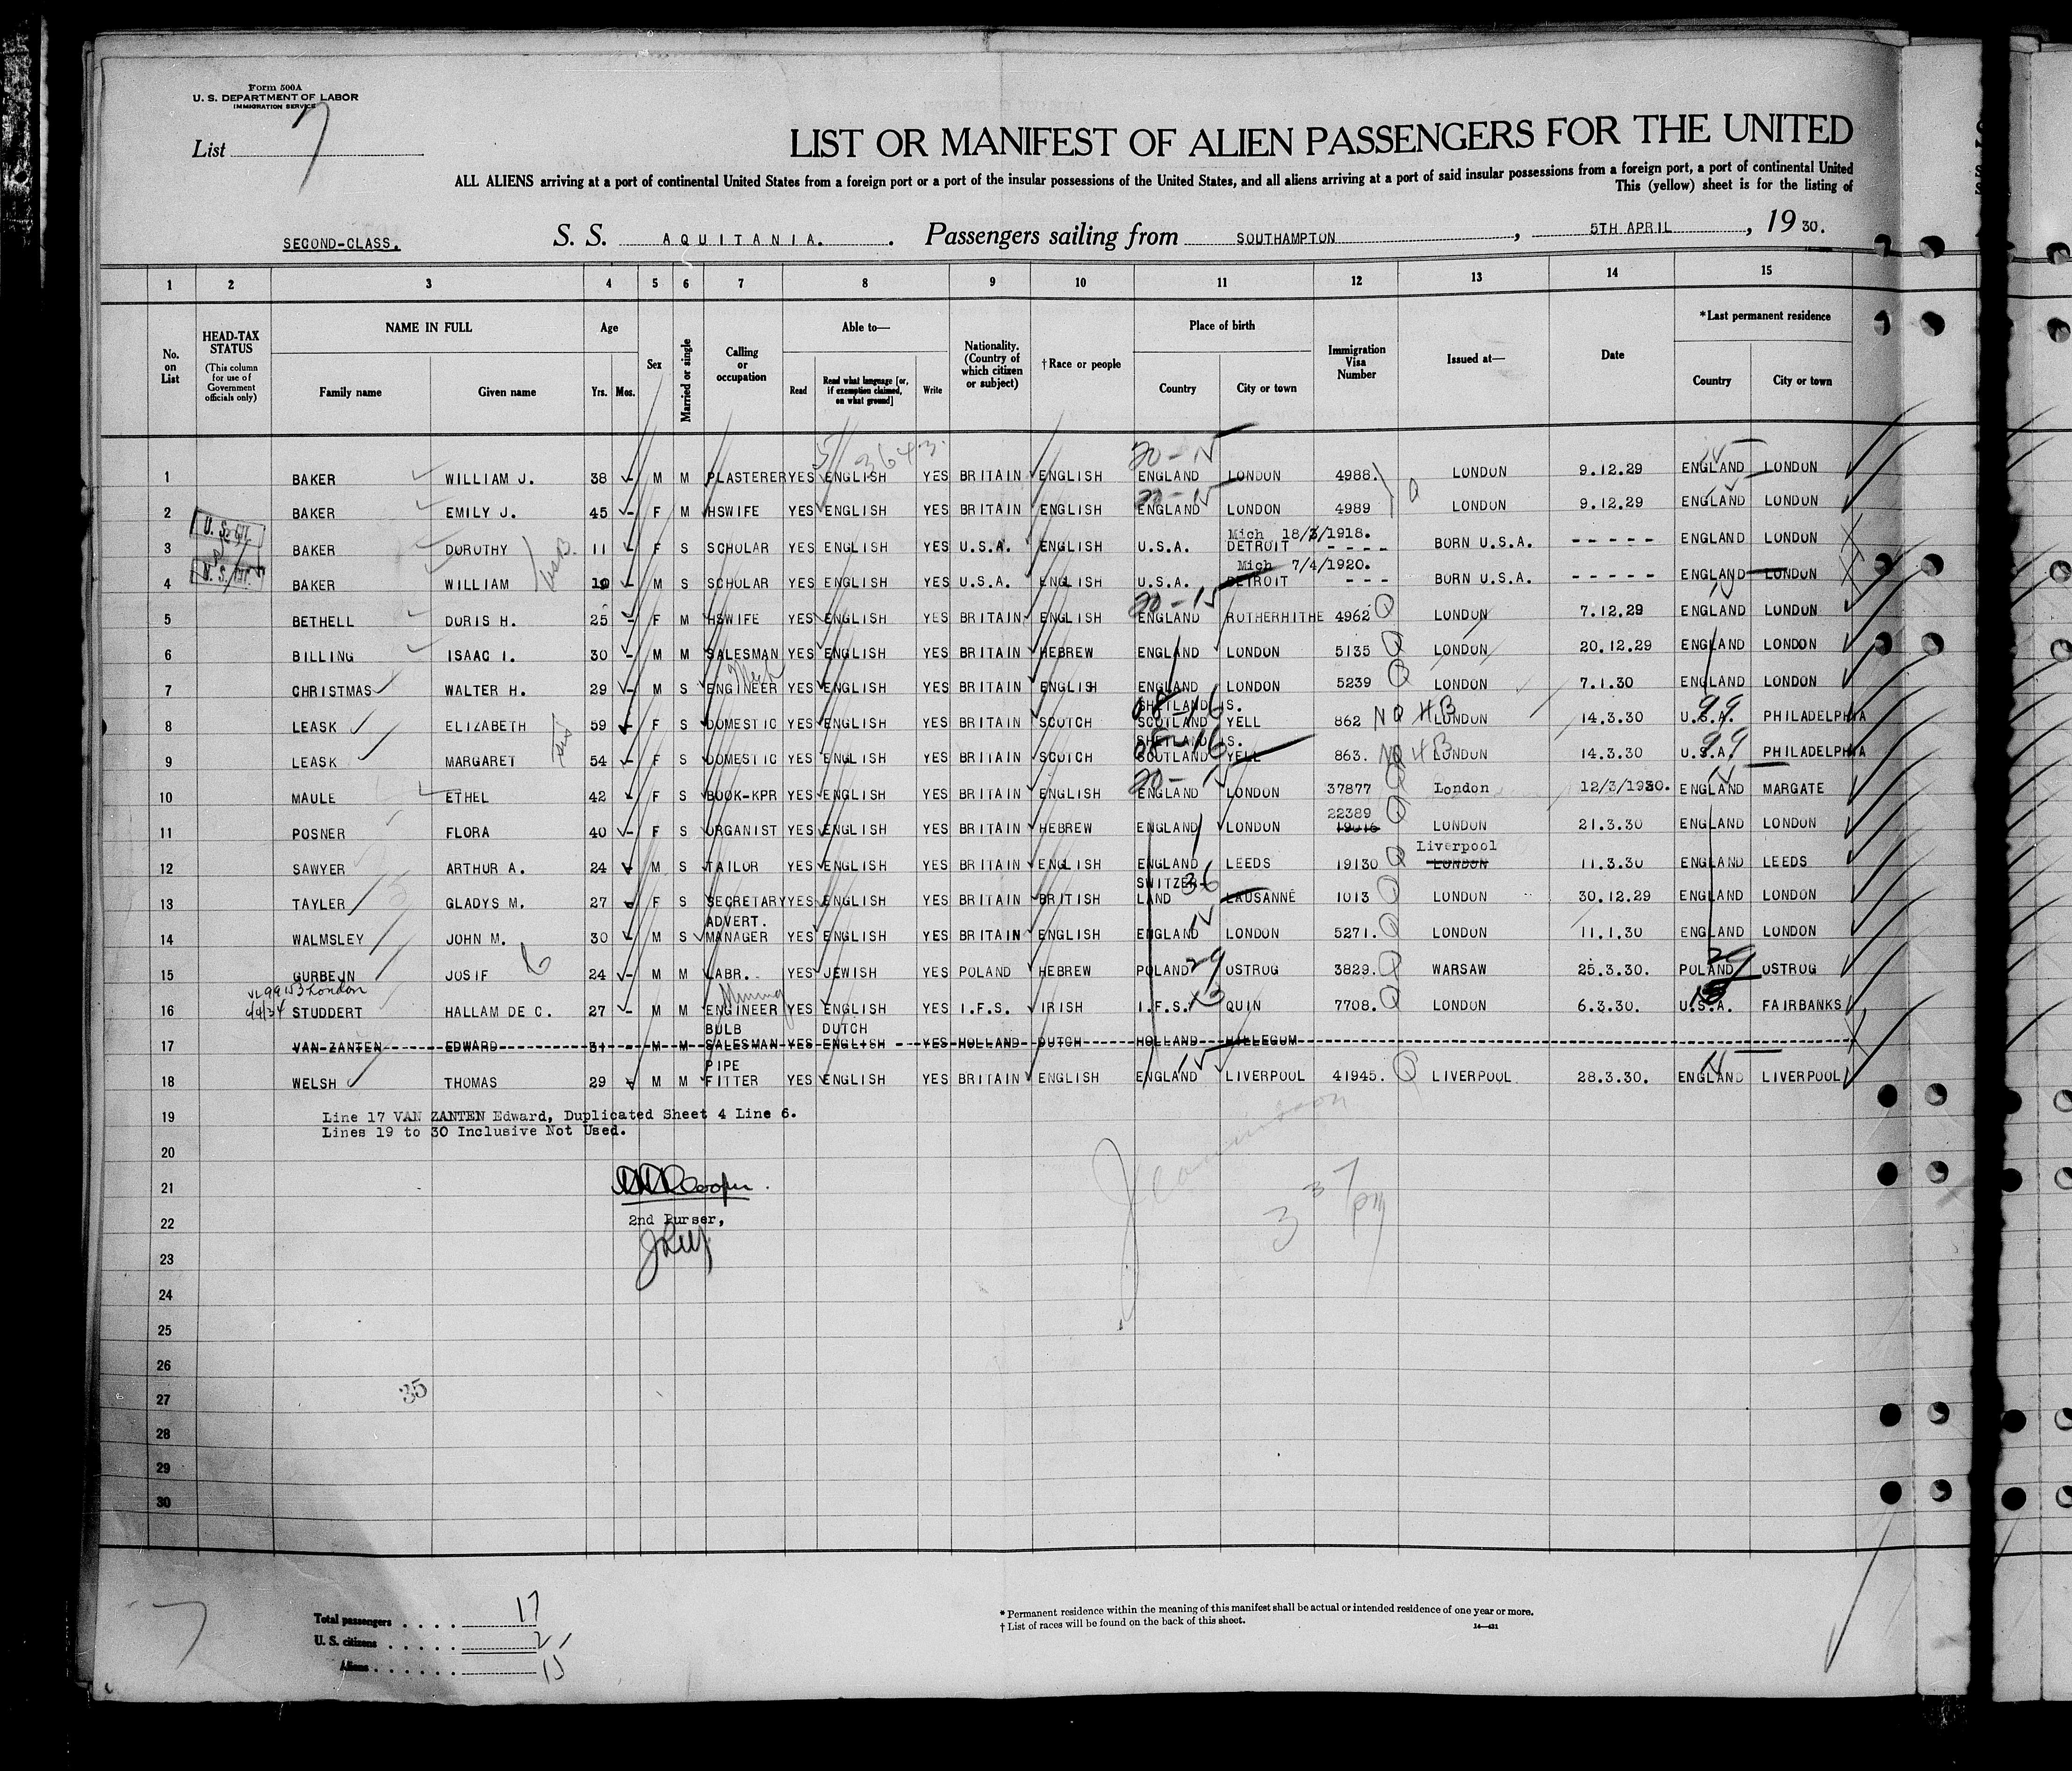 Form 500A
U. S. DEPARTMENT OF LABOR
IMMIGRATION SERVICE
List 7
LIST OR MANIFEST OF ALIEN PASSENGERS FOR THE UNITED
ALL ALIENS arriving at a port of continental United States from a foreign port or a port of the insular possessions of the United States, and all aliens arriving at a port of said insular possessions from a foreign port, a port of continental United
This (yellow) sheet is for the listing of
SECOND-CLASS. S. S. AQUITANIA. Passengers sailing from SOUTHAMPTON, 5TH APRIL, 1930.
1 2 3 4 5 6 7 8 9 10 11 12 13 14 15
No. on List HEAD-TAX STATUS (This column for use of Government officials only) NAME IN FULL Family name Given name Age Yrs. Mos. Sex Married or single Calling or occupation Able to— Read Read what language [or, if exemption claimed, on what ground] Write Nationality. (Country of which citizen or subject) †Race or people Place of birth Country City or town Immigration Visa Number Issued at— Date *Last permanent residence Country City or town
1 BAKER WILLIAM J. 38 M M PLASTERER YES ENGLISH YES BRITAIN ENGLISH ENGLAND LONDON 4988. LONDON 9.12.29 ENGLAND LONDON
2 BAKER EMILY J. 45 F M HSWIFE YES ENGLISH YES BRITAIN ENGLISH ENGLAND LONDON 4989 LONDON 9.12.29 ENGLAND LONDON
Mich 18/3/1918.
3 BAKER DOROTHY 11 F S SCHOLAR YES ENGLISH YES U.S.A. ENGLISH U.S.A. DETROIT - - - - BORN U.S.A. - - - - - ENGLAND LONDON
Mich 7/4/1920.
4 BAKER WILLIAM 10 M S SCHOLAR YES ENGLISH YES U.S.A. ENGLISH U.S.A. DETROIT - - - BORN U.S.A. - - - - - ENGLAND LONDON
5 BETHELL DORIS H. 25 F M HSWIFE YES ENGLISH YES BRITAIN ENGLISH ENGLAND ROTHERHITHE 4962 LONDON 7.12.29 ENGLAND LONDON
6 BILLING ISAAC I. 30 M M SALESMAN YES ENGLISH YES BRITAIN HEBREW ENGLAND LONDON 5135 LONDON 20.12.29 ENGLAND LONDON
7 CHRISTMAS WALTER H. 29 M S ENGINEER YES ENGLISH YES BRITAIN ENGLISH ENGLAND LONDON 5239 LONDON 7.1.30 ENGLAND LONDON
SHETLAND IS.
8 LEASK ELIZABETH 59 F S DOMESTIC YES ENGLISH YES BRITAIN SCOTCH SCOTLAND YELL 862 NQ HB LONDON 14.3.30 U.S.A. PHILADELPHIA
SHETLAND IS.
9 LEASK MARGARET 54 F S DOMESTIC YES ENGLISH YES BRITAIN SCOTCH SCOTLAND YELL 863. NQ HB LONDON 14.3.30 U.S.A. PHILADELPHIA
10 MAULE ETHEL 42 F S BOOK-KPR YES ENGLISH YES BRITAIN ENGLISH ENGLAND LONDON 37877 London 12/3/1930. ENGLAND MARGATE
22389
11 POSNER FLORA 40 F S ORGANIST YES ENGLISH YES BRITAIN HEBREW ENGLAND LONDON LONDON 21.3.30 ENGLAND LONDON
Liverpool
12 SAWYER ARTHUR A. 24 M S TAILOR YES ENGLISH YES BRITAIN ENGLISH ENGLAND LEEDS 19130 LONDON 11.3.30 ENGLAND LEEDS
SWITZER-
13 TAYLER GLADYS M. 27 F S SECRETARY YES ENGLISH YES BRITAIN BRITISH LAND LAUSANNE 1013 LONDON 30.12.29 ENGLAND LONDON
ADVERT.
14 WALMSLEY JOHN M. 30 M S MANAGER YES ENGLISH YES BRITAIN ENGLISH ENGLAND LONDON 5271. LONDON 11.1.30 ENGLAND LONDON
15 GURBEJN JOSIF 24 M M LABR. YES JEWISH YES POLAND HEBREW POLAND OSTROG 3829. WARSAW 25.3.30. POLAND OSTROG
Mining
16 STUDDERT HALLAM DE C. 27 M M ENGINEER YES ENGLISH YES I.F.S. IRISH I.F.S. QUIN 7708. LONDON 6.3.30. U.S.A. FAIRBANKS
BULB DUTCH
17 VAN ZANTEN EDWARD 31 M M SALESMAN YES ENGLISH YES HOLLAND DUTCH HOLLAND HILLEGOM
PIPE
18 WELSH THOMAS 29 M M FITTER YES ENGLISH YES BRITAIN ENGLISH ENGLAND LIVERPOOL 41945. LIVERPOOL 28.3.30. ENGLAND LIVERPOOL
19 Line 17 VAN ZANTEN Edward, Duplicated Sheet 4 Line 6.
Lines 19 to 30 Inclusive Not Used.
20
21 Cooper.
22 2nd Purser,
23
24
25
26
27 35
28
29
30
Total passengers . . . . 17
U. S. citizens . . . . . 2
Aliens . . . . . . 15
* Permanent residence within the meaning of this manifest shall be actual or intended residence of one year or more.
† List of races will be found on the back of this sheet.
14—421
7